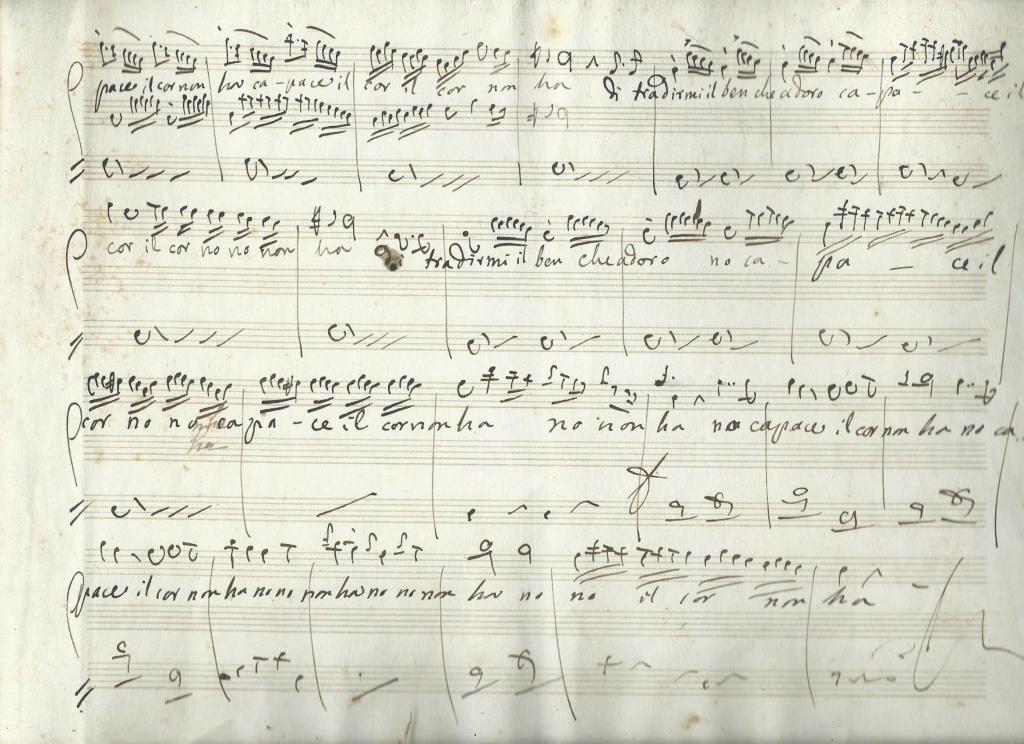 pace il cor non ha ca-pace il cor il cor non ha di tradirmi il ben che adoro ca-pa- - ce il
cor il cor no no non ha di tradirmi il ben che adoro no ca- pa - ce il
cor no no ca pa-ce il cor non ha no non ha no capace il cor non ha no ca
ha
pace il cor non ha no no non ha no no non ha no no il cor non ha